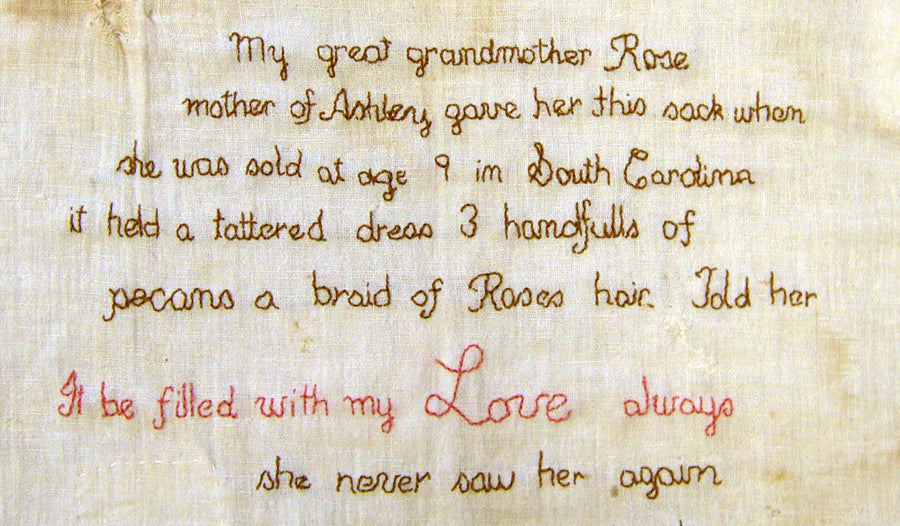 My great grandmother Rose
mother of Ashley gave her this sack when
she was sold at age 9 in South Carolina
it held a tattered dress 3 handfulls of
pecans a braid of Roses hair. Told her
It be filled with my Love always
she never saw her again